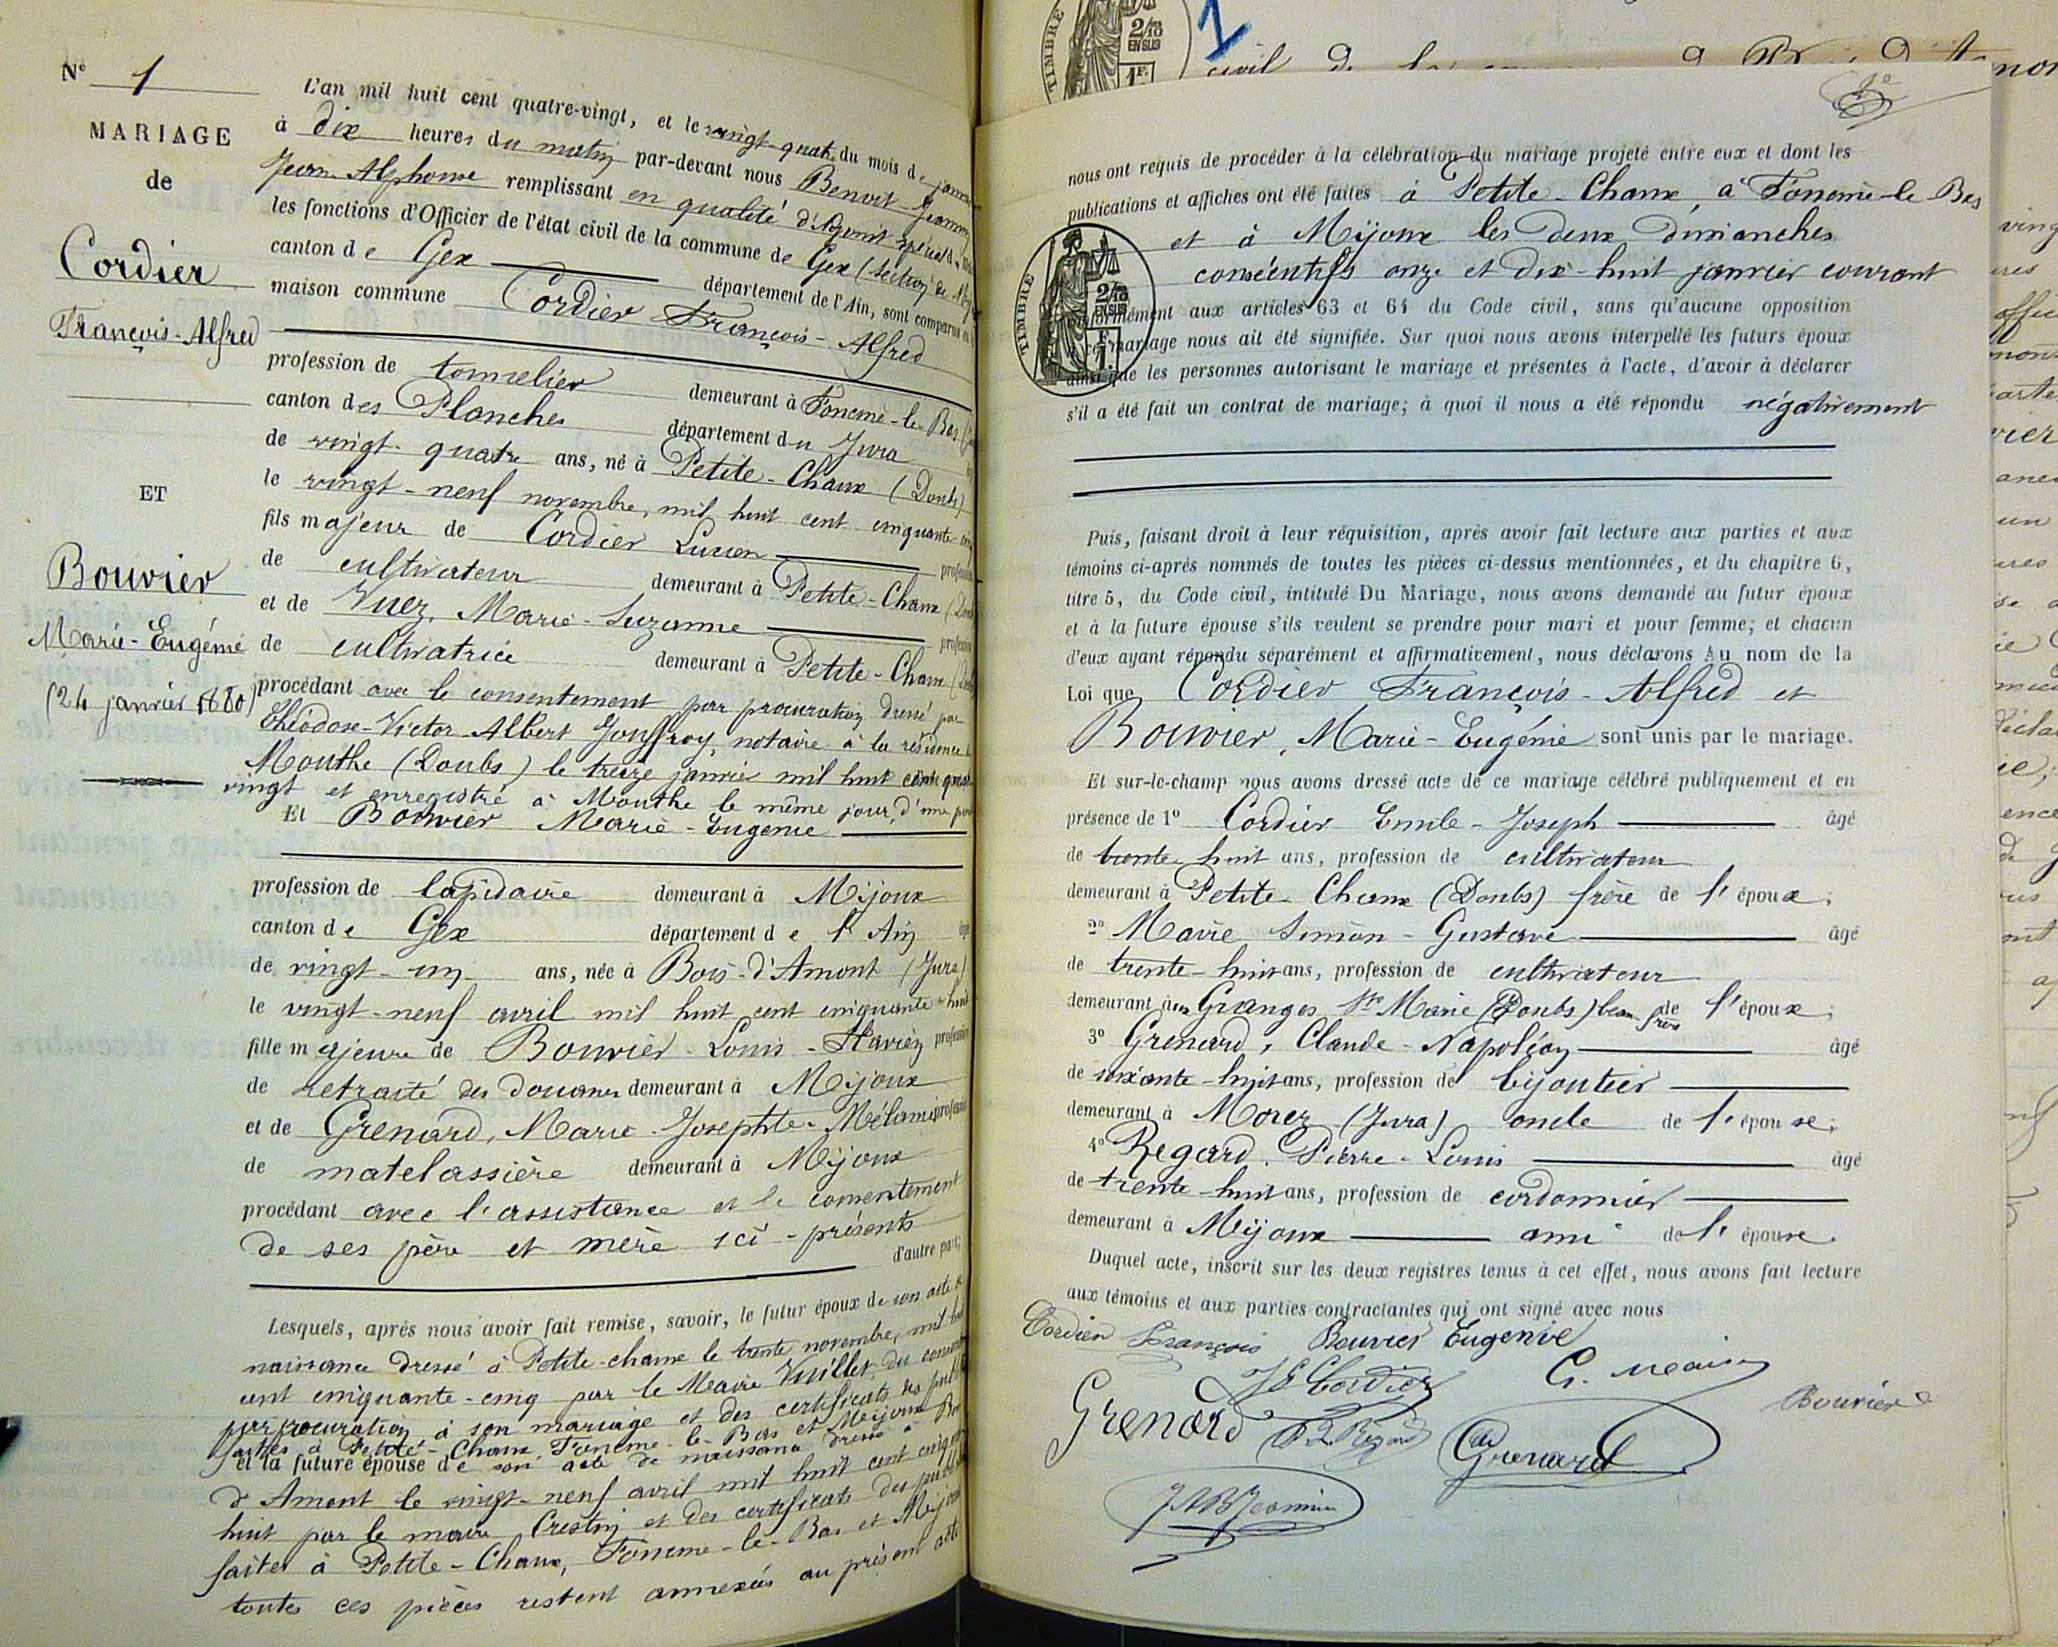 N° 1
MARIAGE
de
Cordier
François-Alfred
ET
Bouvier
Marie-Eugénie
(24 janvier 1880)
L'an mil huit cent quatre-vingt, et le vingt-quatre du mois de janvier
à dix heures du matin par-devant nous Benoit-Jeannin
Jean-Alphonse remplissant en qualité d'Adjoint spécial
les fonctions d'Officier de l'état civil de la commune de Gex (section de Mijoux
canton de Gex département de l'Ain, sont comparus en
maison commune Cordier François-Alfred
profession de tonnelier demeurant à Foncine-le-Bas
canton des Planches département du Jura
de vingt-quatre ans, né à Petite-Chaux (Doubs)
le vingt-neuf novembre, mil huit cent cinquante-cinq
fils majeur de Cordier Lucien profession
de cultivateur demeurant à Petite-Chaux (Doubs
et de Vuez, Marie-Suzanne profession
de cultivatrice demeurant à Petite-Chaux (Doubs
procédant avec le consentement par procuration dressé par
Théodose-Victor-Albert Jouffroy, notaire à la résidence de
Mouthe (Doubs) le treize janvier mil huit cent quatre
vingt et enregistré à Mouthe le même jour, d'une part
Et Bouvier Marie-Eugénie
profession de lapidaire demeurant à Mijoux
canton de Gex département de l'Ain âgée
de vingt-un ans, née à Bois-d'Amont (Jura)
le vingt-neuf avril mil huit cent cinquante-huit
fille majeure de Bouvier-Louis-Flavien profession
de retraité des douanes demeurant à Mijoux
et de Grenard, Marie-Josephte-Mélanie profession
de matelassière demeurant à Mijoux
procédant avec l'assistance et le consentement
de ses père et mère ici-présents
d'autre part;
Lesquels, après nous avoir fait remise, savoir, le futur époux de son acte de
naissance dressé à Petite-chaux le trente novembre, mil huit
cent cinquante-cinq par le Maire Vuillet, du consentement
par procuration à son mariage et des certificats des publications
faites à Petite-Chaux, Foncine-le-Bas et Mijoux
et la future épouse de son acte de naissance dressé à Bois
d'Amont le vingt-neuf avril mil huit cent cinquante
huit par le maire Crestin et des certificats des publications
faites à Petite-Chaux, Foncine-le-Bas et Mijoux
toutes ces pièces restent annexées au présent acte
nous ont requis de procéder à la célébration du mariage projeté entre eux et dont les
publications et affiches ont été faites à Petite-Chaux, à Foncine-le-Bas
et à Mijoux les deux dimanches
consécutifs onze et dix-huit janvier courant
conformément aux articles 63 et 64 du Code civil, sans qu'aucune opposition
à ce mariage nous ait été signifiée. Sur quoi nous avons interpellé les futurs époux
ainsi que les personnes autorisant le mariage et présentes à l'acte, d'avoir à déclarer
s'il a été fait un contrat de mariage; à quoi il nous a été répondu négativement
TIMBRE
2/10
EN SUS
1F.
1
Puis, faisant droit à leur réquisition, après avoir fait lecture aux parties et aux
témoins ci-après nommés de toutes les pièces ci-dessus mentionnées, et du chapitre 6,
titre 5, du Code civil, intitulé Du Mariage, nous avons demandé au futur époux
et à la future épouse s'ils veulent se prendre pour mari et pour femme; et chacun
d'eux ayant répondu séparément et affirmativement, nous déclarons au nom de la
Loi que Cordier François-Alfred et
Bouvier, Marie-Eugénie sont unis par le mariage.
Et sur-le-champ nous avons dressé acte de ce mariage célébré publiquement et en
présence de 1° Cordier Emile-Joseph âgé
de trente-huit ans, profession de cultivateur
demeurant à Petite-Chaux (Doubs) frère de l'époux;
2° Marie Simon-Gustave âgé
de trente-huit ans, profession de cultivateur
demeurant aux Granges Ste Marie (Doubs) beau-frère de l'époux;
3° Grenard, Claude-Napoléon âgé
de soixante-huit ans, profession de bijoutier
demeurant à Morez (Jura) oncle de l'épouse;
4° Regard, Pierre-Louis âgé
de trente-huit ans, profession de cordonnier
demeurant à Mijoux ami de l'épouse.
Duquel acte, inscrit sur les deux registres tenus à cet effet, nous avons fait lecture
aux témoins et aux parties contractantes qui ont signé avec nous
Cordier François Bouvier Eugénie
JE Cordier G. Marie
Grenard P L Regard Bouvier
Grenard
JAB Jeannin